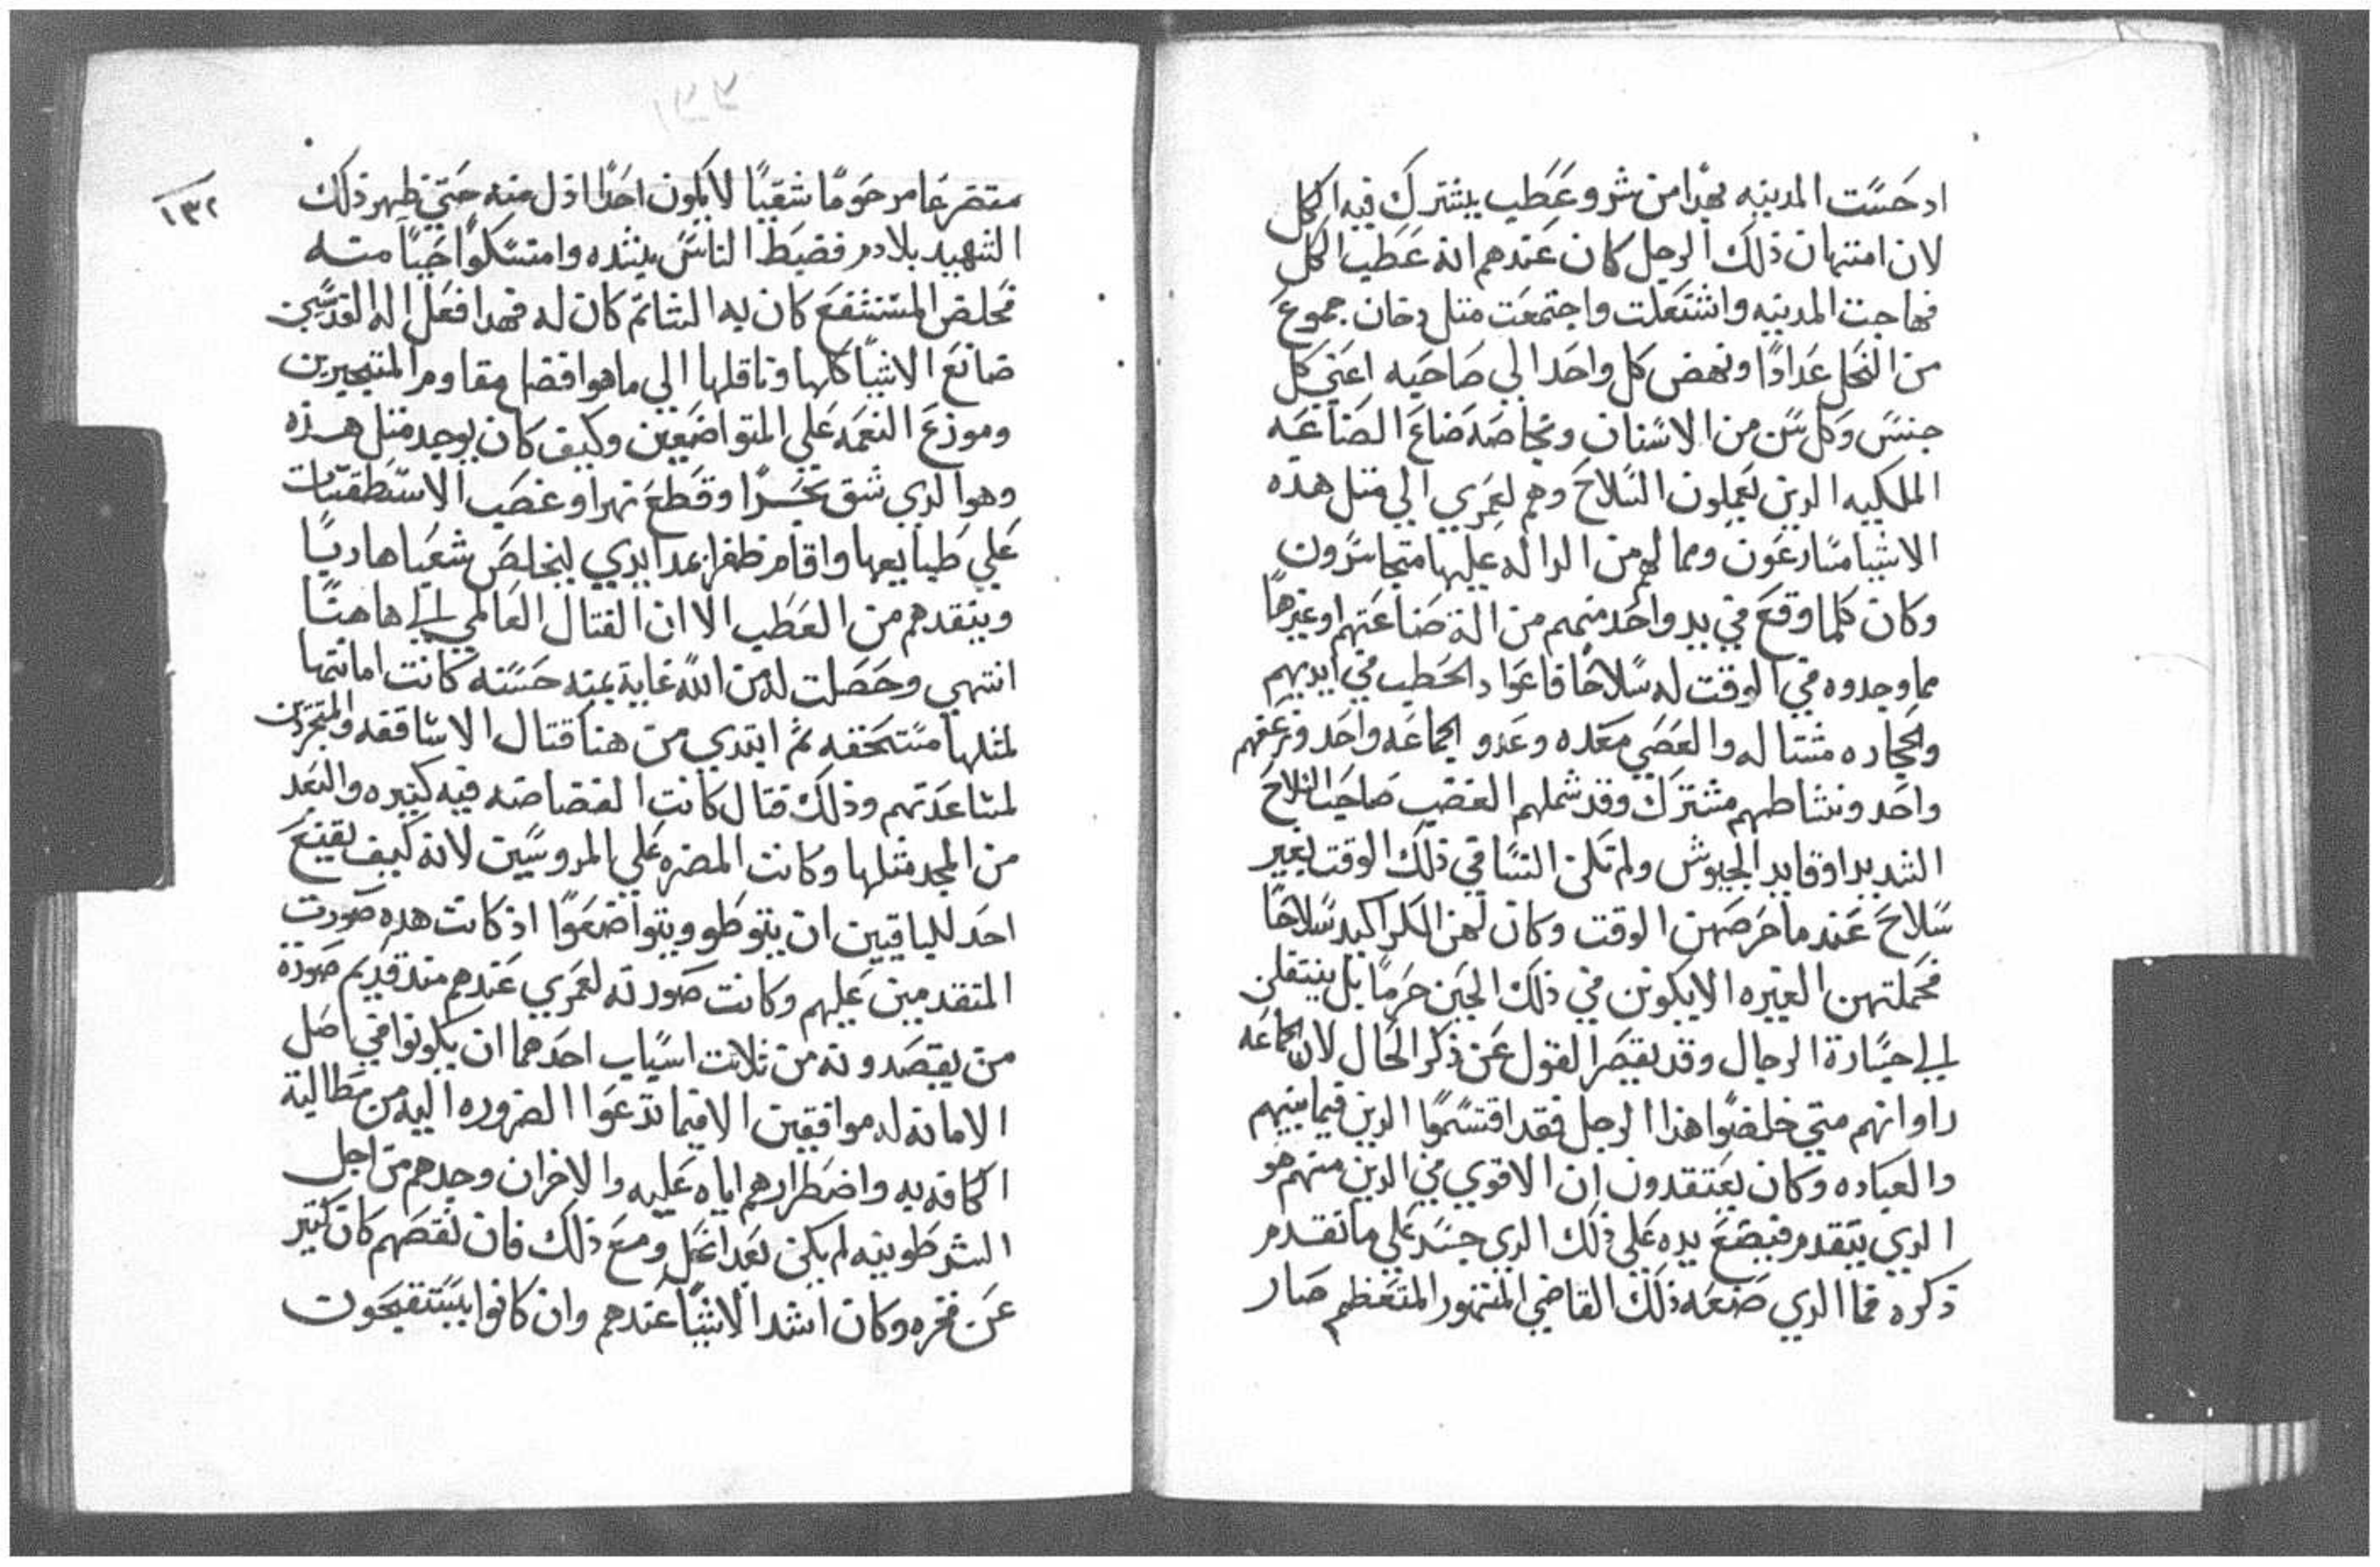 اد حست المدينه بهدا من شر وعطب يشترك فيه الكل
لان امتهان ذلك الرجل كان عندهم انه عطب الكل
فهاجت المدينه واشتعلت واجتمعت متل دخان جموع
من النحل عدادا ونهض كل واحد الي صاحبه اعني كل
جنس وكل سن من الاسنان وبخاصه صناع الصناعه
الملكيه الدين يعملون السلاح وهم لعمري الي متل هده
الاشيا مسارعون ومما لهم من الداله عليها متجاسرون
وكان كلما وقع في يد واحد منهم من الة صناعتهم او غيرها
مما وجدوه في الوقت له سلاحا فاعواد الحطب في ايديهم
والحجاره مشتاله والعصي معده وعدو الجماعه واحد ونزعهم
واحد ونشاطهم مشترك وقد شملهم الغضب صاحب السلاح
الشديد او قايد الجيوش ولم تكن النسا في ذلك الوقت بغير
سلاح عند ما حرصهن الوقت وكان لهن الكراكيد سلاحا
فحملتهن الغيره الا يكونن في ذلك الحين حرما بل ينتقلن
الي جسارة الرجال وقد يقصر القول عن ذكر الحال لان الجماعه
راوا انهم متي خلصوا هذا الرجل فقد اقتسموا الدين فيما بينهم
والعباده وكان يعتقدون ان الاقوي في الدين منهم هو
الدي يتقدم فيضع يده علي ذلك الدي جسر علي ما تقدم
ذكره فما الدي صنعه ذلك القاضي المتنمور المتعظم صار
١٣٢
متضرعا مرحوما شقيا لا يكون احدا اذل منه حتي ظهر ذلك
الشهيد بلا دم فضبط الناس بيده وامتسكوا حبا منه
فخلص المستشفع كان به الشاتم كان له فهدا فعل اله القديسين
صانع الاشيا كلها وناقلها الي ما هو افضل مقاوم المتجبرين
وموزع النعمه علي المتواضعين وكيف كان يوجد متل هذه
وهو الدي شق بحرا وقطع نهرا وغصب الاسطقسات
علي طبايعها واقام ظفرا بمد ايدي ليخلص شعبا هاربا
وينقدهم من العطب الا ان القتال العالمي الي هاهنا
انتهي وحصلت له من الله غاية بميته حسنه كانت امانتها
لمثلها مستحقه ثم ابتدي من هنا قتال الاساقفه والمتجردين
لمساعدتهم وذلك قتال كانت الغضاضه فيه كبيره والبعد
من المجد مثلها وكانت المضره علي المروسين لانه كيف يقنع
احد للباقيين ان يتوطو ويتواضعوا اذ كانت هده صورت
المتقدمين عليهم وكانت صورته لعمري عندهم منذ قديم صورة
من يقصدونه من ثلات اسباب احدهما ان يكونوا في اصل
الامانه له موافقين الا فيما تدعوا الضروره اليه من مطالبة
الكافه به واضطرارهم اياه عليه والاخران وجدهم من اجل
الشرطوينه لم يكن بعد انحل ومع ذلك فان نقصهم كان كتير
عن فخره وكان اشد الاشيا عندهم وان كانوا يستقبحون